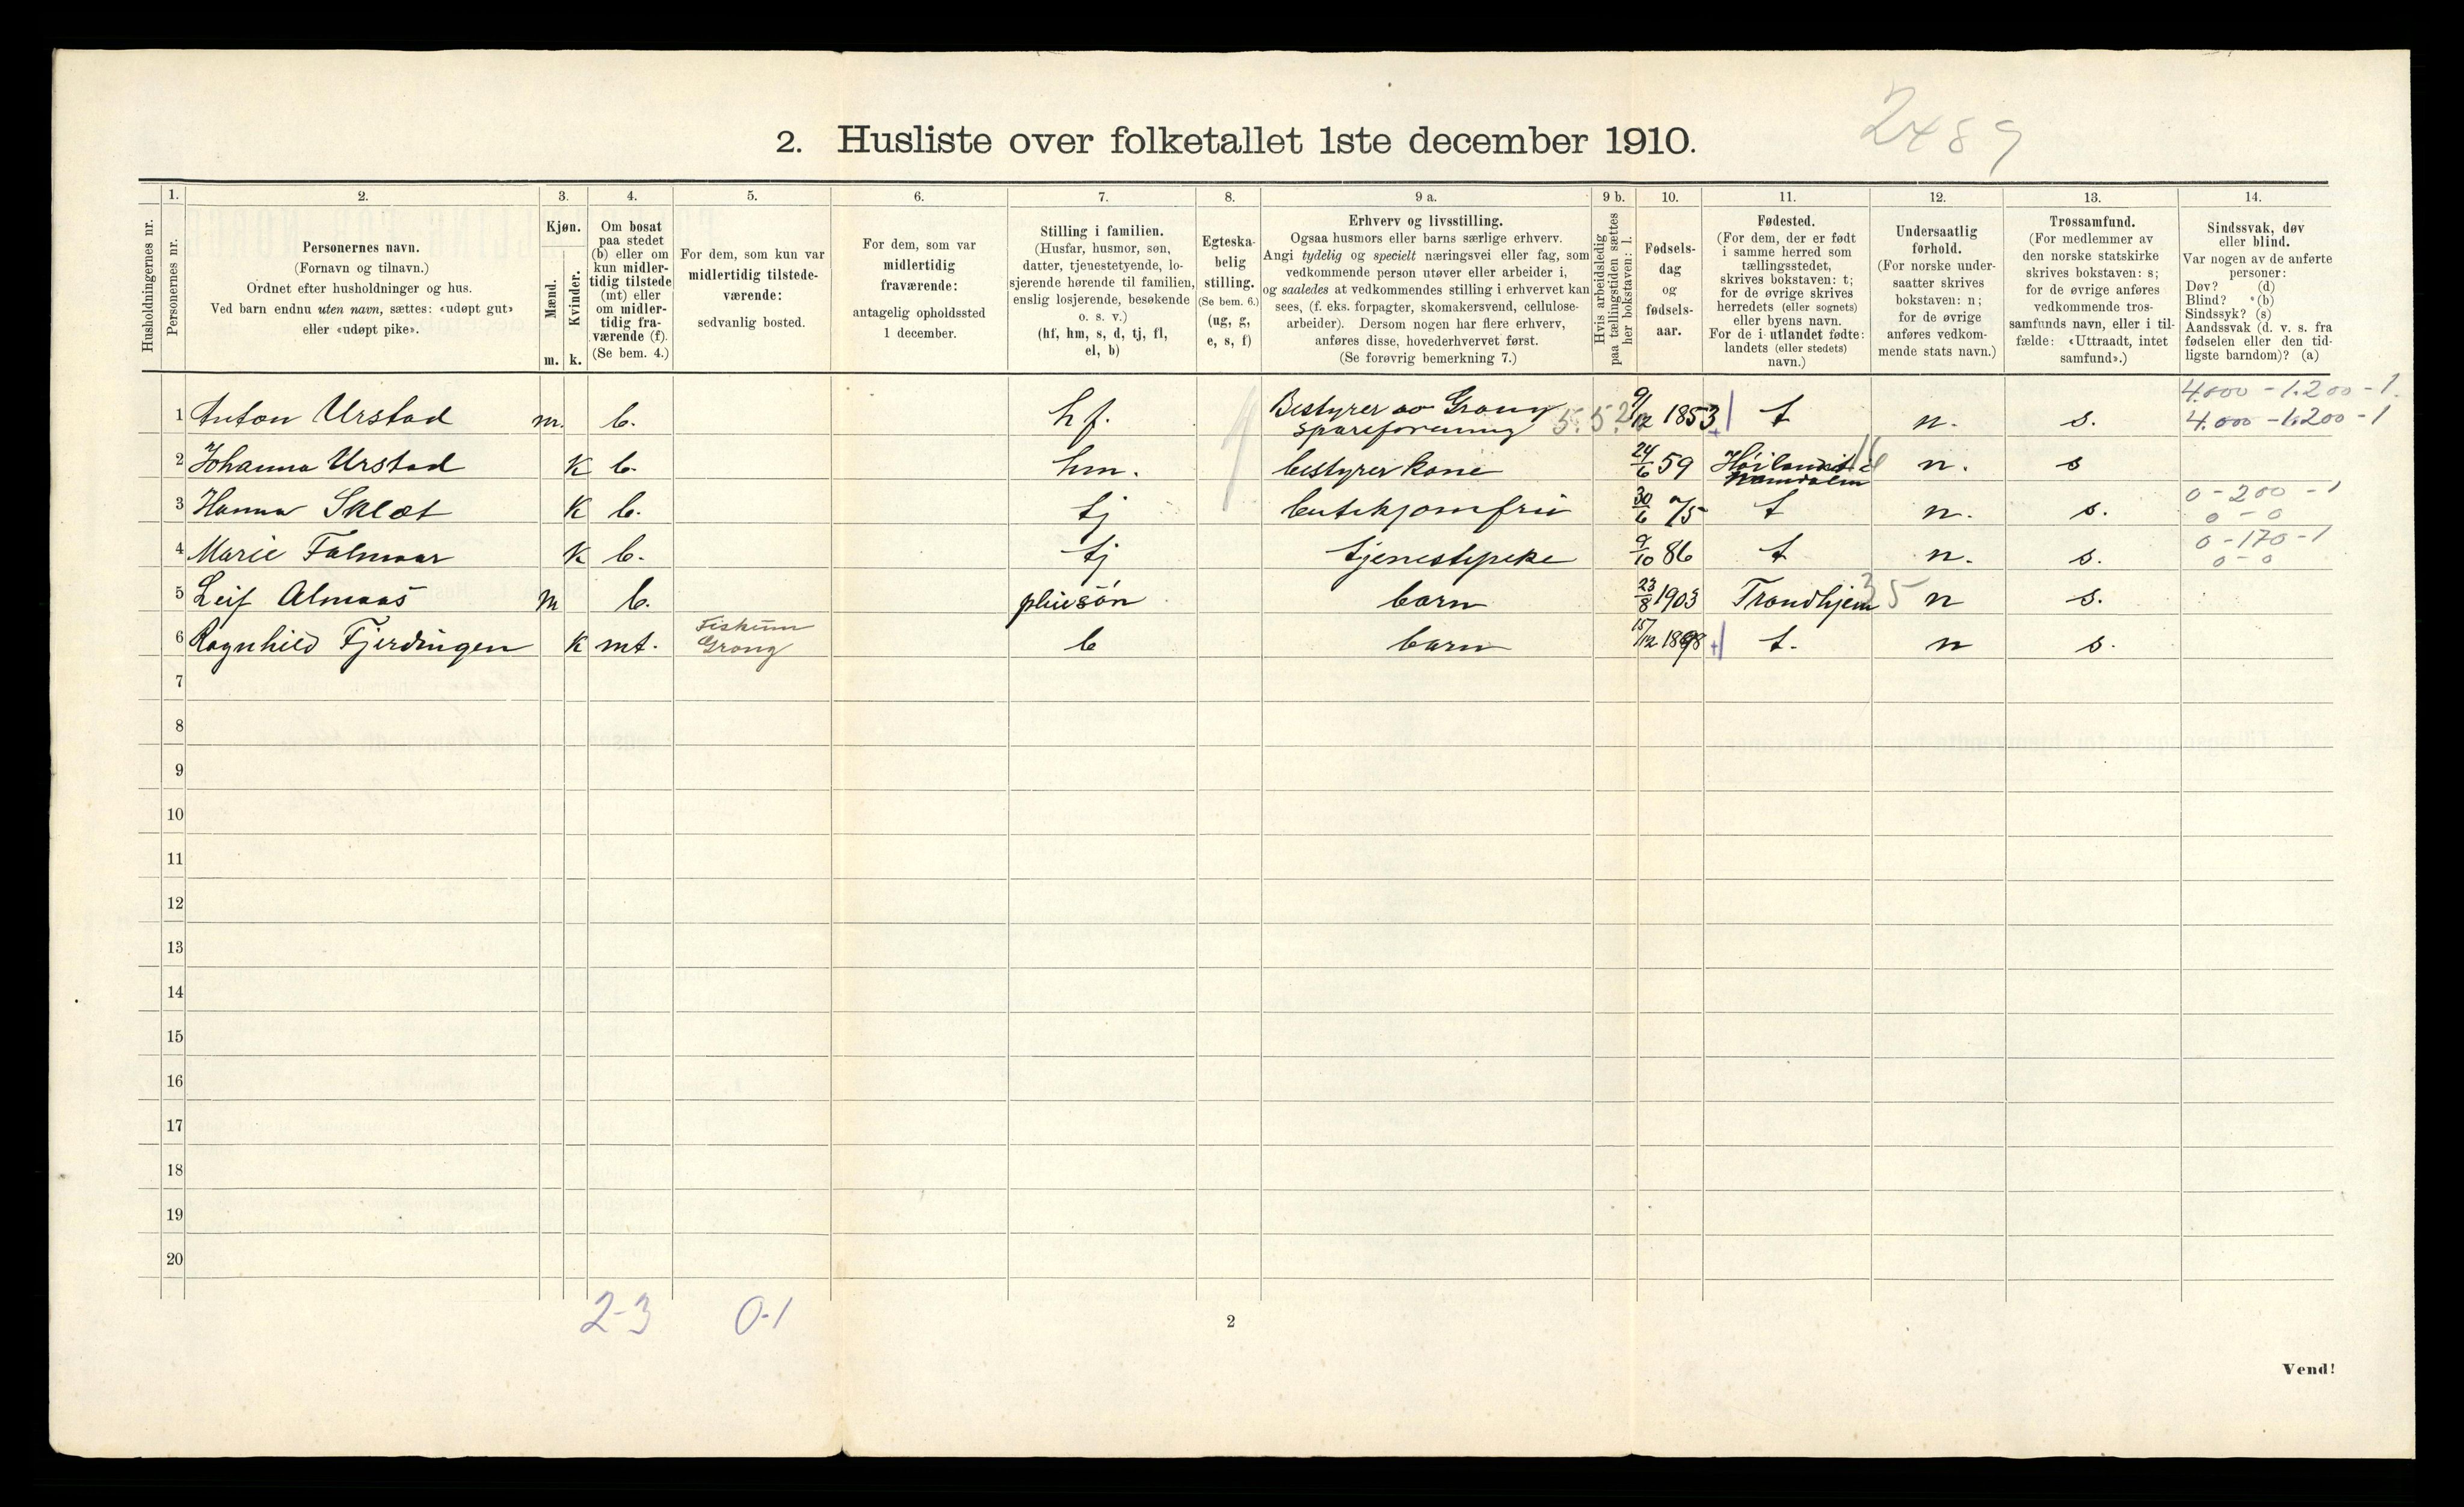 2489
2. Husliste over folketallet 1ste december 1910.
Husholdningernes nr.
1.
Personernes nr.
2.
Personernes navn.
(Fornavn og tilnavn.)
Ordnet efter husholdninger og hus.
Ved barn endnu uten navn, sættes: «udøpt gut»
eller «udøpt pike».
3.
Kjøn.
Mænd.
Kvinder.
m. k.
4.
Om bosat
paa stedet
(b) eller om
kun midler-
tidig tilstede
(mt) eller
om midler-
tidig fra-
værende (f).
(Se bem. 4.)
5.
For dem, som kun var
midlertidig tilstede-
værende:
sedvanlig bosted.
6.
For dem, som var
midlertidig
fraværende:
antagelig opholdssted
1 december.
7.
Stilling i familien.
(Husfar, husmor, søn,
datter, tjenestetyende, lo-
sjerende hørende til familien,
enslig losjerende, besøkende
o. s. v.)
(hf, hm, s, d, tj, fl,
el, b)
8.
Egteska-
belig
stilling.
(Se bem. 6.)
(ug, g,
e, s, f)
9 a.
Erhverv og livsstilling.
Ogsaa husmors eller barns særlige erhverv.
Angi tydelig og specielt næringsvei eller fag, som
vedkommende person utøver eller arbeider i,
og saaledes at vedkommendes stilling i erhvervet kan
sees, (f. eks. forpagter, skomakersvend, cellulose-
arbeider). Dersom nogen har flere erhverv,
anføres disse, hovederhvervet først.
(Se forøvrig bemerkning 7.)
9 b.
Hvis arbeidsledig
paa tællingstiden sættes
her bokstaven: l.
10.
Fødsels-
dag
og
fødsels-
aar.
11.
Fødested.
(For dem, der er født
i samme herred som
tællingsstedet,
skrives bokstaven: t;
for de øvrige skrives
herredets (eller sognets)
eller byens navn.
For de i utlandet fødte:
landets (eller stedets)
navn.)
12.
Undersaatlig
forhold.
(For norske under-
saatter skrives
bokstaven: n;
for de øvrige
anføres vedkom-
mende stats navn.)
13.
Trossamfund.
(For medlemmer av
den norske statskirke
skrives bokstaven: s;
for de øvrige anføres
vedkommende tros-
samfunds navn, eller i til-
fælde: «Uttraadt, intet
samfund».)
14.
Sindssvak, døv
eller blind.
Var nogen av de anførte
personer:
Døv? (d)
Blind? (b)
Sindssyk? (s)
Aandssvak (d. v. s. fra
fødselen eller den tid-
ligste barndom)? (a)
4.000 - 1.200 - 1.
1 Anton Urstad m. b. hf. Bestyrer av Grong spareforening 5.52 9/12 1853 t n. s. 4.000 - 1.200 - 1
2 Johanna Urstad K b. hm. bestyrer kone 24/6 59 Høilandet i Namdalen 16 n. s
0 - 200 - 1
3 Hanna Sklæt K b. tj butikjomfru 30/6 75 t n. s. 0 - 0
0 - 170 - 1
4 Marie Falmaar K b. tj tjenestepike 9/10 86 t n. s. 0 - 0
5 Leif Almaas m b. pleiesøn barn 23/8 1903 Trondhjem 35 n s.
6 Ragnhild Fjerdingen K mt. Fiskum Grong b barn 15/12 1898 t. n s.
7
8
9
10
11
12
13
14
15
16
17
18
19
20
2-3 0-1
2
Vend!